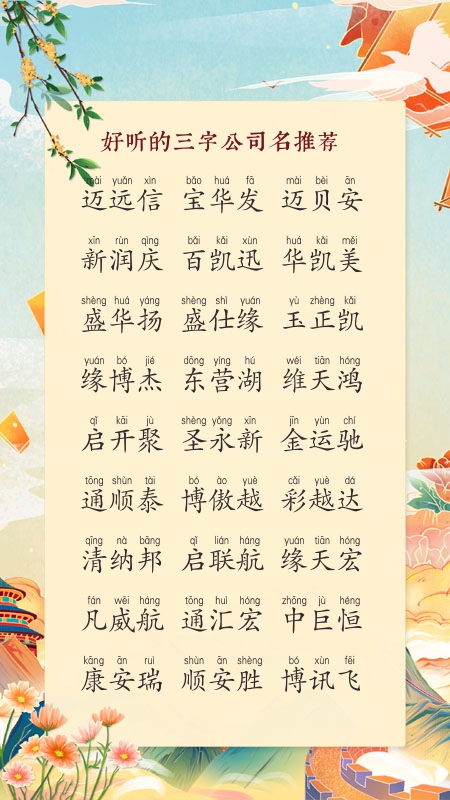 好听的三字公司名推荐
mài yuǎn xìn bǎo huá fā mài bèi ān
迈远信 宝华发 迈贝安
xīn rùn qìng bǎi kǎi xùn huá kǎi měi
新润庆 百凯迅 华凯美
shèng huá yáng shèng shì yuán yù zhèng kǎi
盛华扬 盛仕缘 玉正凯
yuán bó jié dōng yíng hú wéi tiān hóng
缘博杰 东营湖 维天鸿
qǐ kāi jù shèng yǒng xīn jīn yùn chí
启开聚 圣永新 金运驰
tōng shùn tài bó ào yuè cǎi yuè dá
通顺泰 博傲越 彩越达
qīng nà bāng qǐ lián háng yuán tiān hóng
清纳邦 启联航 缘天宏
fán wēi háng tōng huì hóng zhōng jù héng
凡威航 通汇宏 中巨恒
kāng ān ruì shùn ān shèng bó xùn fēi
康安瑞 顺安胜 博讯飞